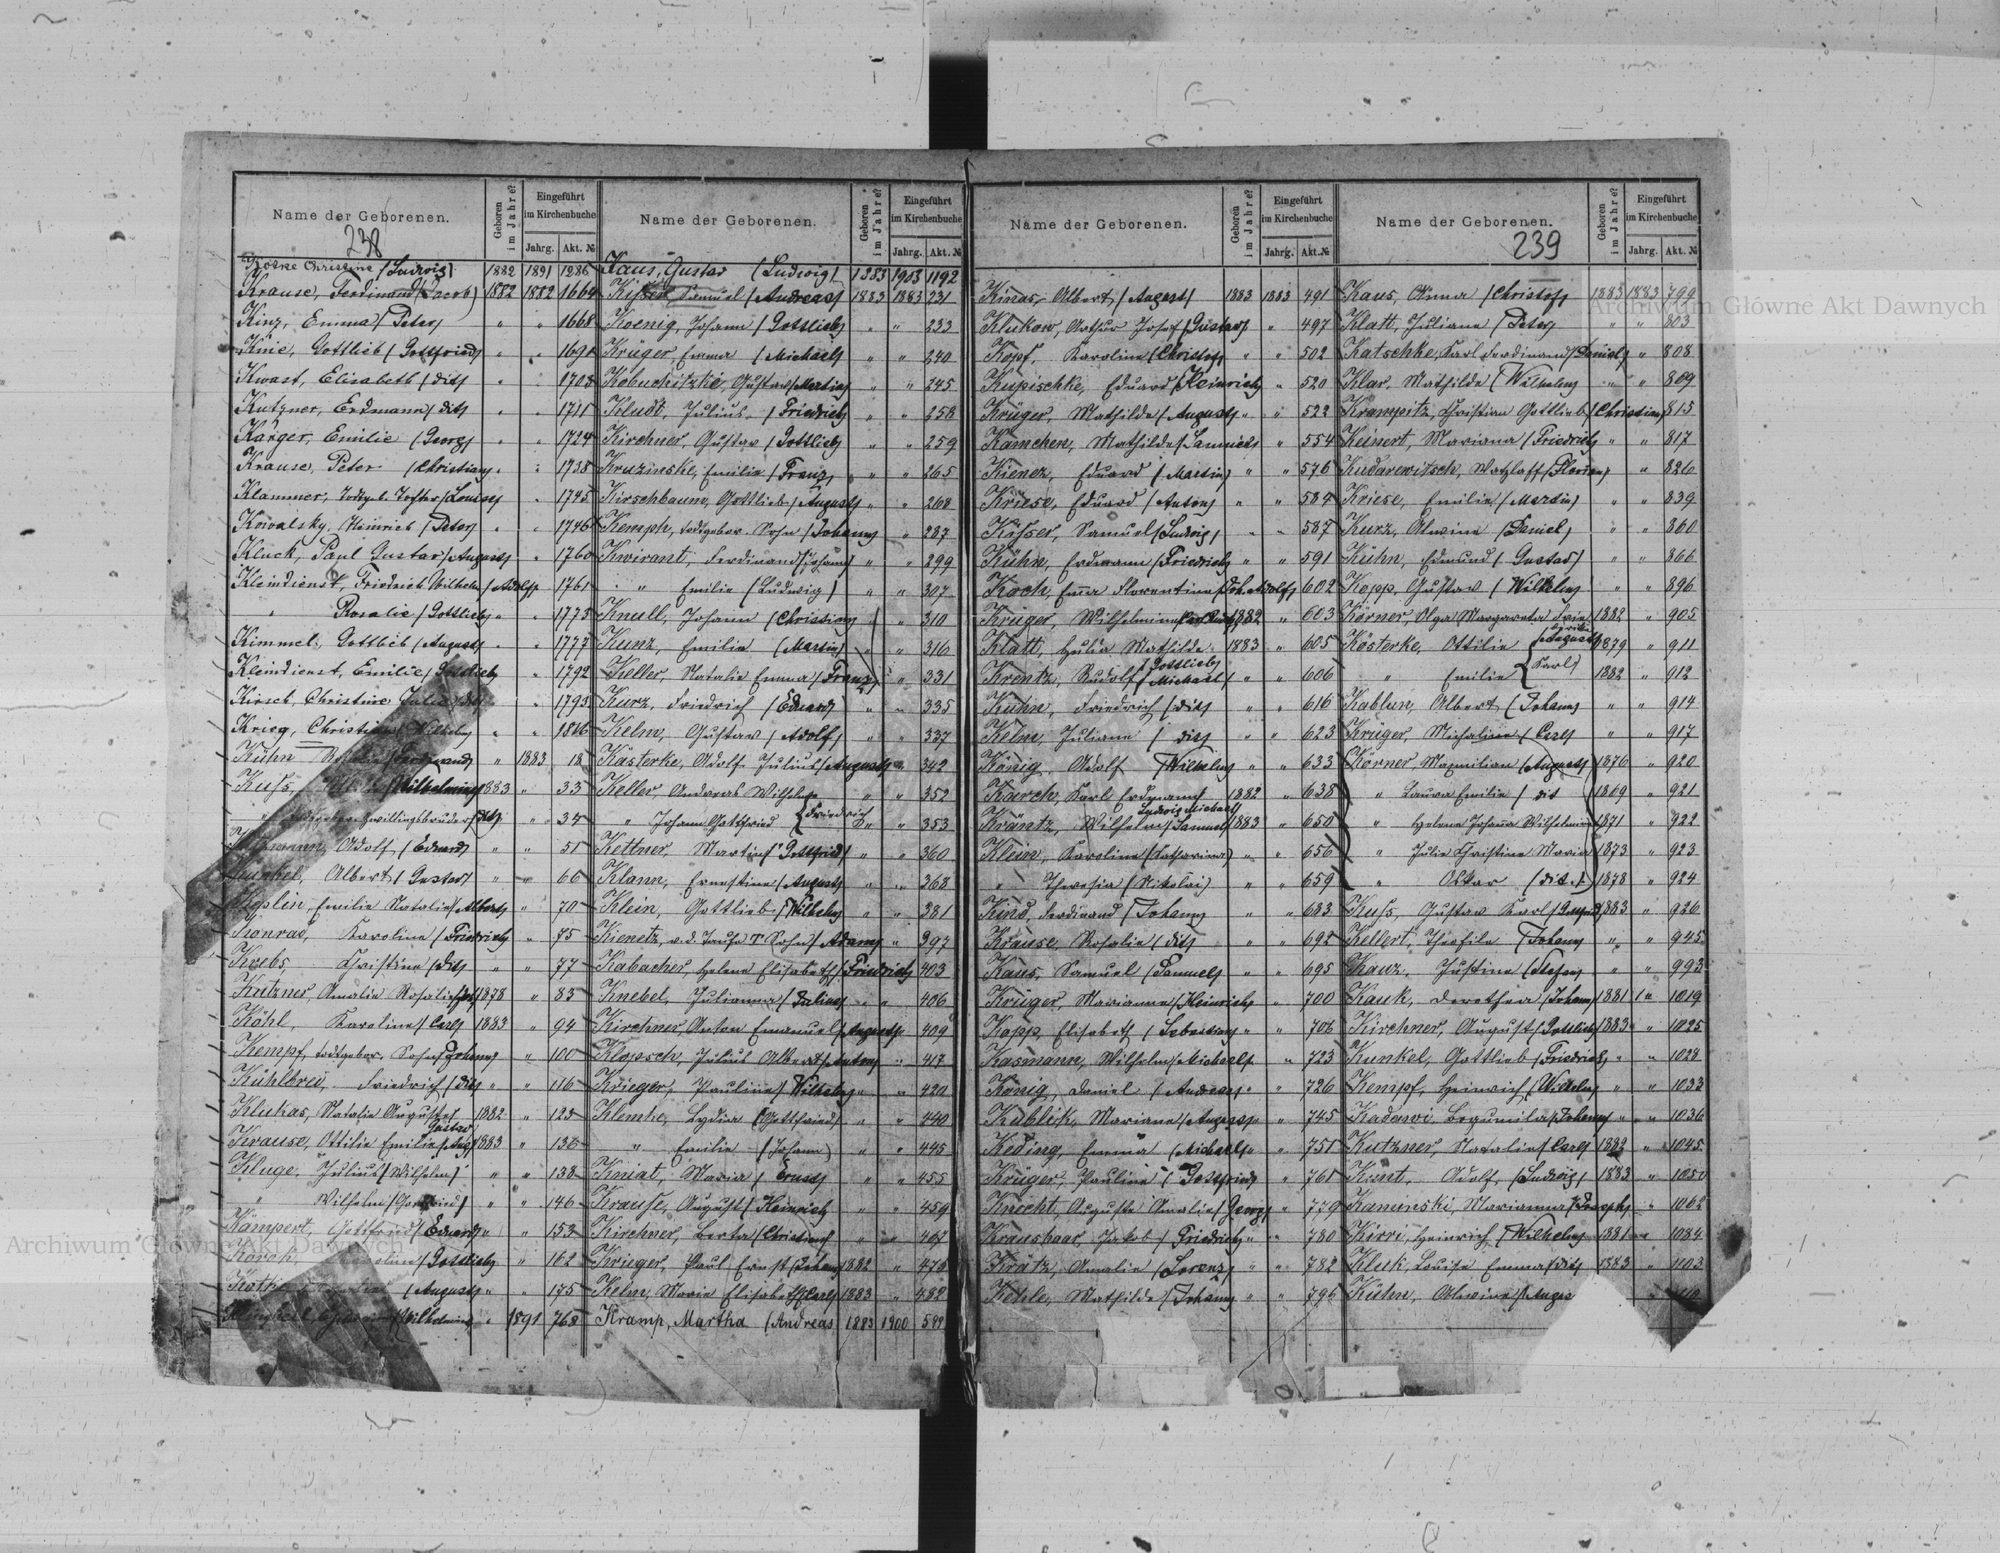 Name der Geborenen.
238
Geboren im Jahre?
Eingeführt im Kirchenbuche
Jahrg. Akt. №
Christine (Ludwig) 1882 1891 1286
Krause, Ferdinand (Jacob) 1882 1882 1664
Kinz, Emma (Peter) " " 1668
Knie, Gottlieb (Gottfried) " " 1691
Kwast, Elisabeth (dit) " " 1703
Kutzner, Erdmann (dit) " " 1711
Karger, Emilie (Georg) " " 1724
Krause, Peter (Christian) " " 1738
Klammer, Tochter (Louise) " 1745
Kowalsky, Heinrich (Peter) " " 1746
Kluck, Paul Gustav (August) " 1760
Kleindienst, Friedrich Wilhelm (Adolf) 1761
" Rosalie (Gottlieb) " " 1775
Kimmel, Gottlieb (August) " " 1777
Kleindienst, Emilie (Gottlieb) " 1792
Kirsch, Christine Julie (dit) " 1793
Krieg, Christian (Wilhelm) " " 1816
Kühn (Ferdinand) " 1883 18
Kuss, (Wilhelmine) 1883 " 33
" Zwillingsbruder (dit) " 34
Adolf (Eduard) " " 51
Kunkel, Albert (Gustav) " " 66
Emilie Natalie (Albert) " " 70
Konrad, Karoline (Friedrich) " 75
Krebs, Christine (dit) " " 77
Kutzner, Amalie Rosalie 1878 " 83
Köhl, Karoline (Carl) 1883 " 94
Kempf, todtgebor. Sohn (Johann) " 100
Kühlbrei, Friedrich (dit) " " 116
Klukas, Natalie Auguste 1882 " 123
Krause, Ottilie Emilie (Gustav Aug) 1883 " 136
Kluge, Julius (Wilhelm) " " 138
" Wilhelm (Gottfried) " " 146
Kämpert, Gottfried (Eduard) " " 153
(Gottlieb) " " 162
(August) " " 175
(Wilhelmine) " 1891 768
Name der Geborenen.
Geboren im Jahre?
Eingeführt im Kirchenbuche
Jahrg. Akt. №
Kaus, Gustav (Ludwig) 1883 1903 1192
Samuel (Andreas) 1883 1883 231
Koenig, Johann (Gottlieb) " " 233
Krüger, Emma (Michael) " " 240
Kobuchitzkie, Gustav (Martin) " " 245
Kludt, Julius (Friedrich) " " 258
Kirchner, Gustav (Gottlieb) " " 259
Kruzinski, Emilie (Franz) " " 265
Kirschbaum, Gottlieb (August) " " 268
Kemph, todtgebor. Sohn (Johann) " 287
Kwirant, Ferdinand (Johann) " " 299
" Emilie (Ludwig) " " 307
Knull, Johann (Christian) " " 310
Kunz, Emilie (Martin) " " 316
Keller, Natalie Emma (Franz) " 331
Kurz, Friedrich (Eduard) " " 335
Kelm, Gustav (Adolf) " " 337
Kasterke, Adolf Julius (August) " 342
Keller Andreas Wilhelm " " 352
" Johann Gottfried (Friedrich) " " 353
Kettner, Martin (Gottfried) " 360
Klann, Ernestine (August) " " 368
Klein, Gottlieb (Wilhelm) " " 381
Kienetz, v. d. Taufe † Sohn (Adam) " 397
Kabacher, Helene Elisabeth (Friedrich) 403
Knebel, Julianna (Julius) " " 406
Kirchner Anton Emanuel (August) " 409
Klopsch, Julius Albert (Anton) " 417
Krieger, Pauline (Wilhelm) " " 420
Klemke, Lydia (Gottfried) " " 440
" Emilie (Johann) " " 445
Kniat, Maria (Ernst) " " 455
Krause, August (Heinrich) " " 459
Kirchner, Berta (Christian) " " 467
Krieger, Paul Ernst (Johann) 1882 " 478
Kelm, Marie Elisabeth (Carl) 1883 " 482
Kramp, Martha (Andreas 1883 1900 599
Name der Geborenen.
Geboren im Jahre?
Eingeführt im Kirchenbuche
Jahrg. Akt. №
Kinas, Albert (August) 1883 1883 491
Klukow, Arthur Josef (Gustav) " 497
Kopf, Karoline (Christof) " " 502
Kupischke, Eduard (Heinrich) " 520
Krüger, Mathilde (August) " " 522
Kamchen, Mathilde (Samuel) " 554
Kienez, Eduard (Martin) " " 576
Kriese, Eduard (Anton) " " 584
Kisser, Samuel (Ludwig) " " 587
Kühn, Erdmann (Friedrich) " " 591
Koch, Emma Florentine (Joh. Adolf) 602
Krüger, Wilhelmine 1882 " 603
Klatt, Hulda Mathilde (Gottlieb) 1883 " 605
Krentz, Rudolf (Michael) " " 606
Kuhn, Friedrich (dit) " " 616
Kelm, Juliane (dit) " " 623
König, Adolf (Wilhelm) " " 633
Karch, Karl Erdmann (Ludwig Michael) 1882 " 638
Kräntz, Wilhelm (Samuel) 1883 " 650
Klein, Karoline (Catharina) " " 656
" Theresia (Nikolai) " " 659
Kind, Ferdinand (Johann) " 683
Krause, Rosalie (dit) " " 692
Kaus, Samuel (Samuel) " " 695
Krüger, Marianne (Heinrich) " " 700
Kopp, Elisabeth (Sebastian) " " 706
Kasmann, Wilhelm (Michael) " " 723
König, Daniel (Andreas) " " 726
Kublik, Mariane (August) " " 745
Keding, Emma (Michael) " " 751
Krüger, Pauline (Gottfried) " 761
Knecht, Auguste Amalie (Georg) " 779
Kraushaar, Jakob (Friedrich) " " 780
Krätz, Amalie (Lorenz) " " 782
Kehle, Mathilde (Johann) " " 796
Name der Geborenen.
239
Geboren im Jahre?
Eingeführt im Kirchenbuche
Jahrg. Akt. №
Kaus, Anna (Christof) 1883 1883 799
Klatt, Juliane (Peter) " " 803
Katschke, Karl Ferdinand (Daniel) " 808
Klar, Mathilde (Wilhelm) " " 809
Krampitz, Christian Gottlieb (Christian) 815
Keinert, Mariana (Friedrich) " " 817
Kudarewitsch, Watzlaff (Florian) " 826
Kriese, Emilie (Martin) " " 839
Kurz, Alwine (Daniel) " " 860
Kühn, Edmund (Gustav) " " 866
Kopp, Gustav (Wilhelm) " " 896
Körner, Olga Margareta 1882 " 905
Kösterke, Ottilie (August) 1879 " 911
" Emilie (Karl) 1882 " 912
Kablun, Albert (Johann) " " 914
Krüger, Michaline (Carl) " " 917
Körner, Maximilian (August) 1876 " 920
" Laura Emilie (dit 1869 " 921
" Helene Johanna Wilhelmine 1871 " 922
" Julie Christine Maria 1873 " 923
" Oskar (dit.) 1878 " 924
Kuss, Gustav Karl 1883 " 926
Kellert, Theofile (Johann) " " 945
Kauz, Justine (Stefan) " " 993
Kauk, Dorothea (Johann) 1881 " 1019
Kirchner, August (Gottlieb) 1883 " 1025
Kunkel, Gottlieb (Friedrich) " " 1028
Kempf, Heinrich (Wilhelm) " " 1033
Kadowi Bogumila (Johann) " " 1036
Kutzner, Natalie (Carl) 1882 " 1045
Kunt, Adolf (Ludwig) 1883 " 1050
Kaminski, Marianna (Joseph) " 1062
Kirri, Heinrich (Wilhelm) 1881 " 1084
Kluk, Louise Emma (dit) 1883 " 1103
Kühn, Alwine
Archiwum Główne Akt Dawnych
Archiwum Główne Akt Dawnych